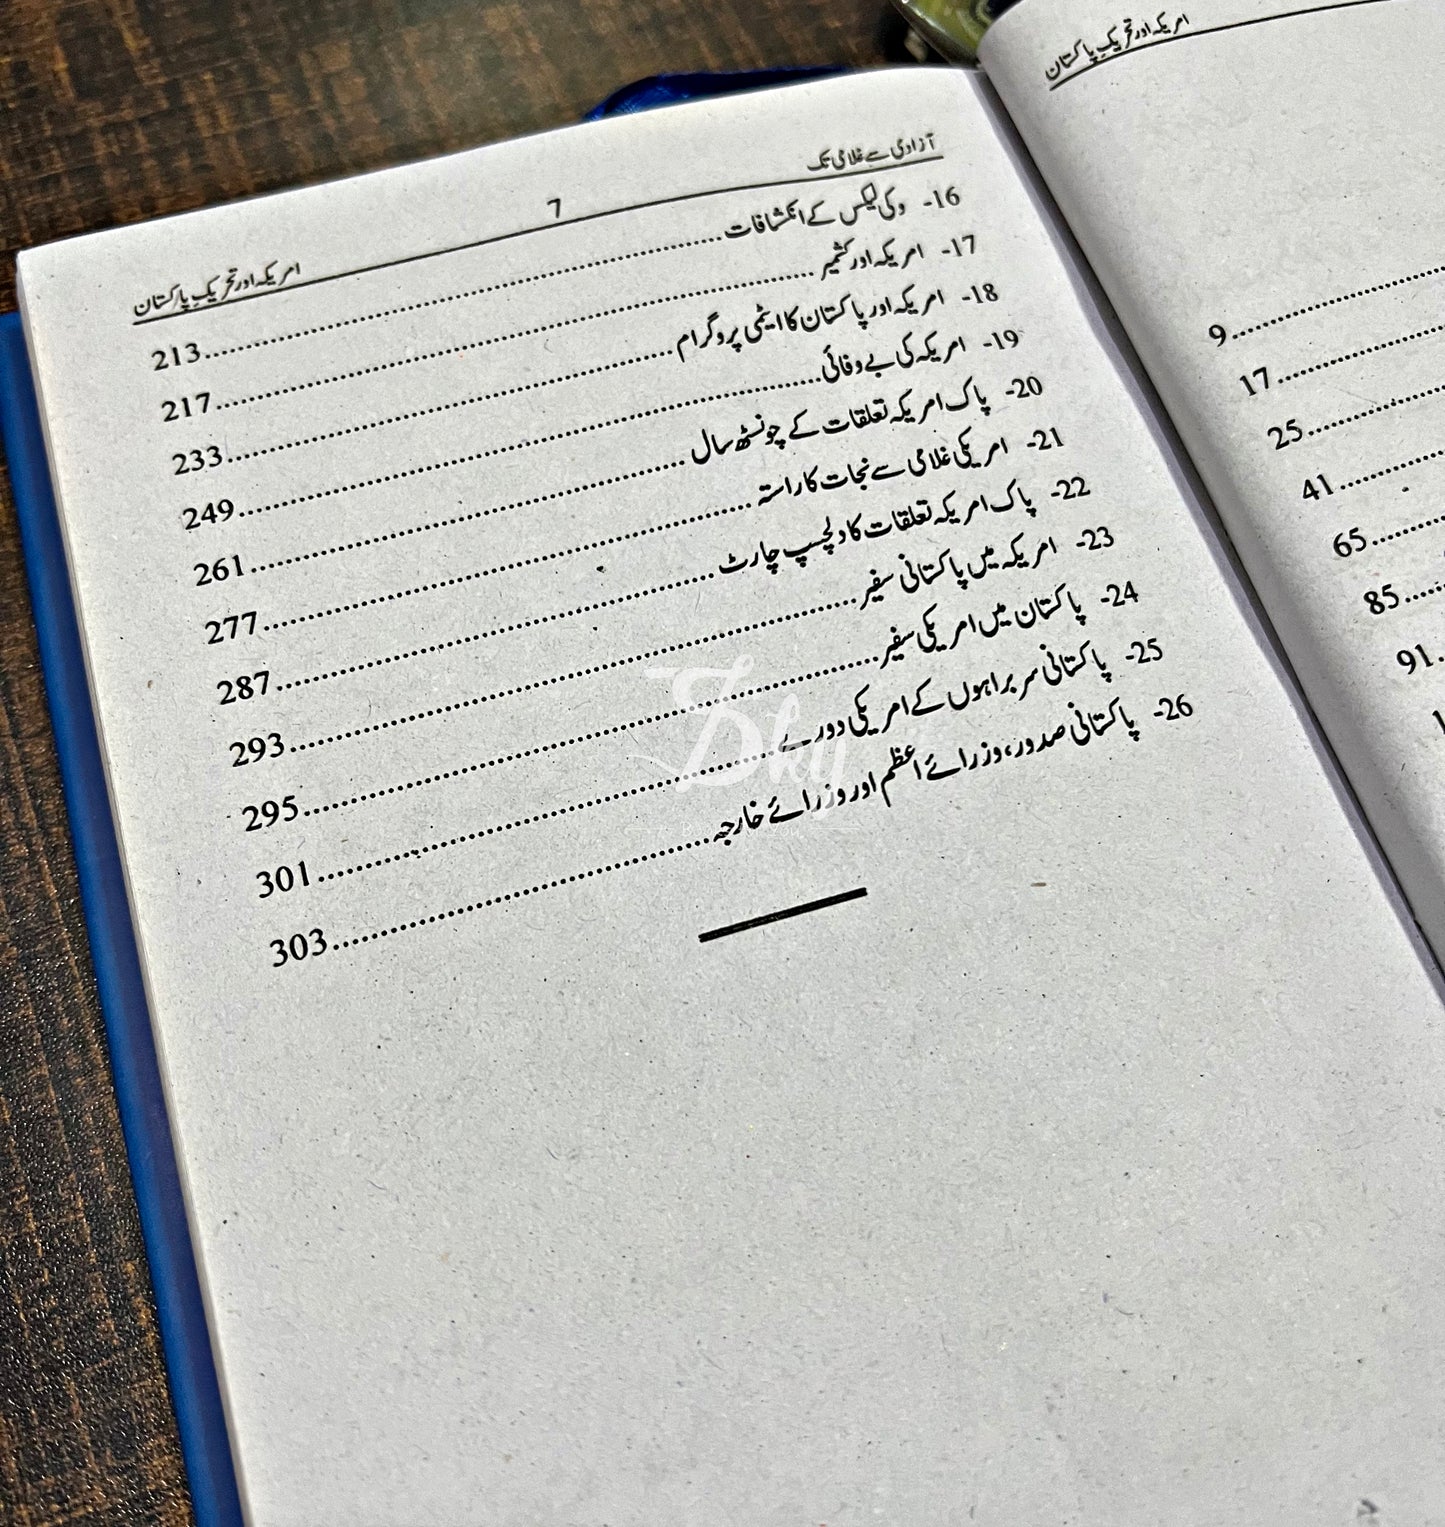 امریکہ اور تحریکِ پاکستان
9
17
25
41
65
85
91
آزادی سے غلامی تک 7 امریکہ اور تحریکِ پاکستان
16- وکی لیکس کے انکشافات 213
17- امریکہ اور کشمیر 217
18- امریکہ اور پاکستان کا ایٹمی پروگرام 233
19- امریکہ کی بے وفائی 249
20- پاک امریکہ تعلقات کے چونسٹھ سال 261
21- امریکی غلامی سے نجات کا راستہ 277
22- پاک امریکہ تعلقات کا دلچسپ چارٹ 287
23- امریکہ میں پاکستانی سفیر 293
24- پاکستان میں امریکی سفیر 295
25- پاکستانی سربراہوں کے امریکی دورے 301
26- پاکستانی صدور، وزرائے اعظم اور وزرائے خارجہ 303